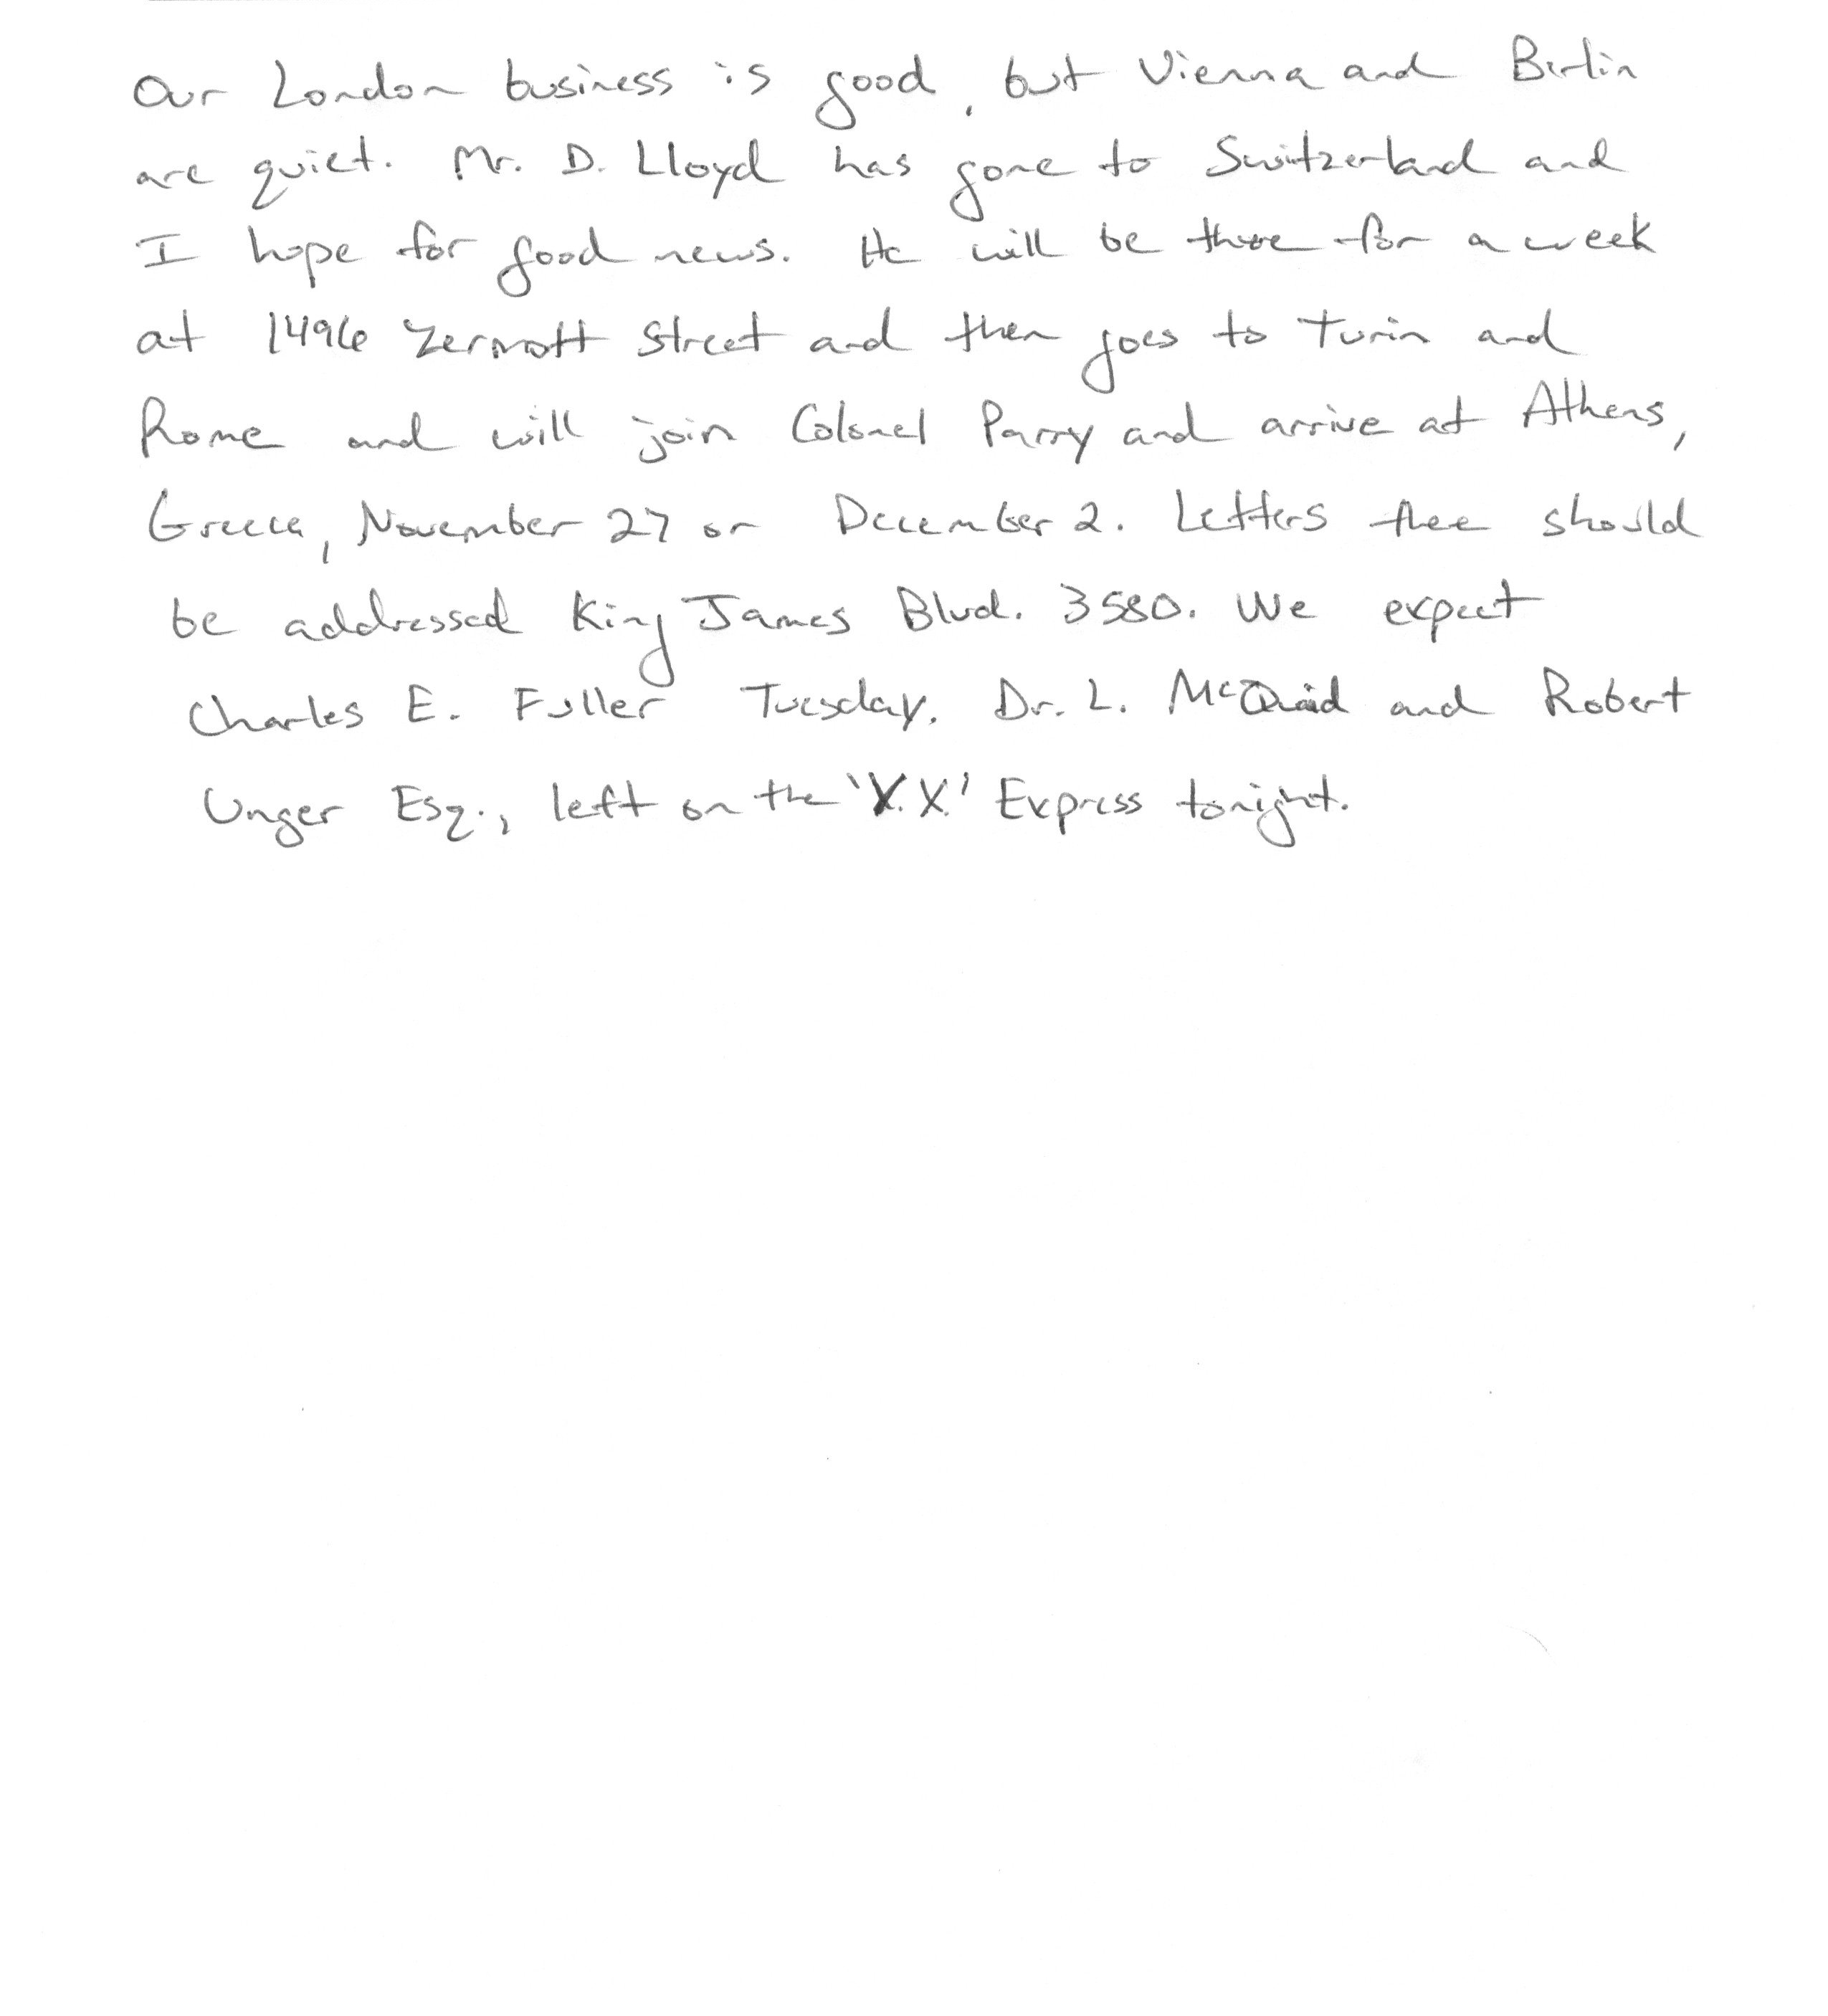 Our London business is good, but Vienna and Berlin
are quiet. Mr. D. Lloyd has gone to Switzerland and
I hope for good news. He will be there for a week
at 1496 Zermott Street and then goes to Turin and
Rome and will join Colonel Parry and arrive at Athens,
Greece, November 27 or December 2. Letters there should
be addressed King James Blvd. 3580. We expect
Charles E. Fuller Tuesday. Dr. L. McQuaid and Robert
Unger Esq., left on the 'X.X.' Express tonight.